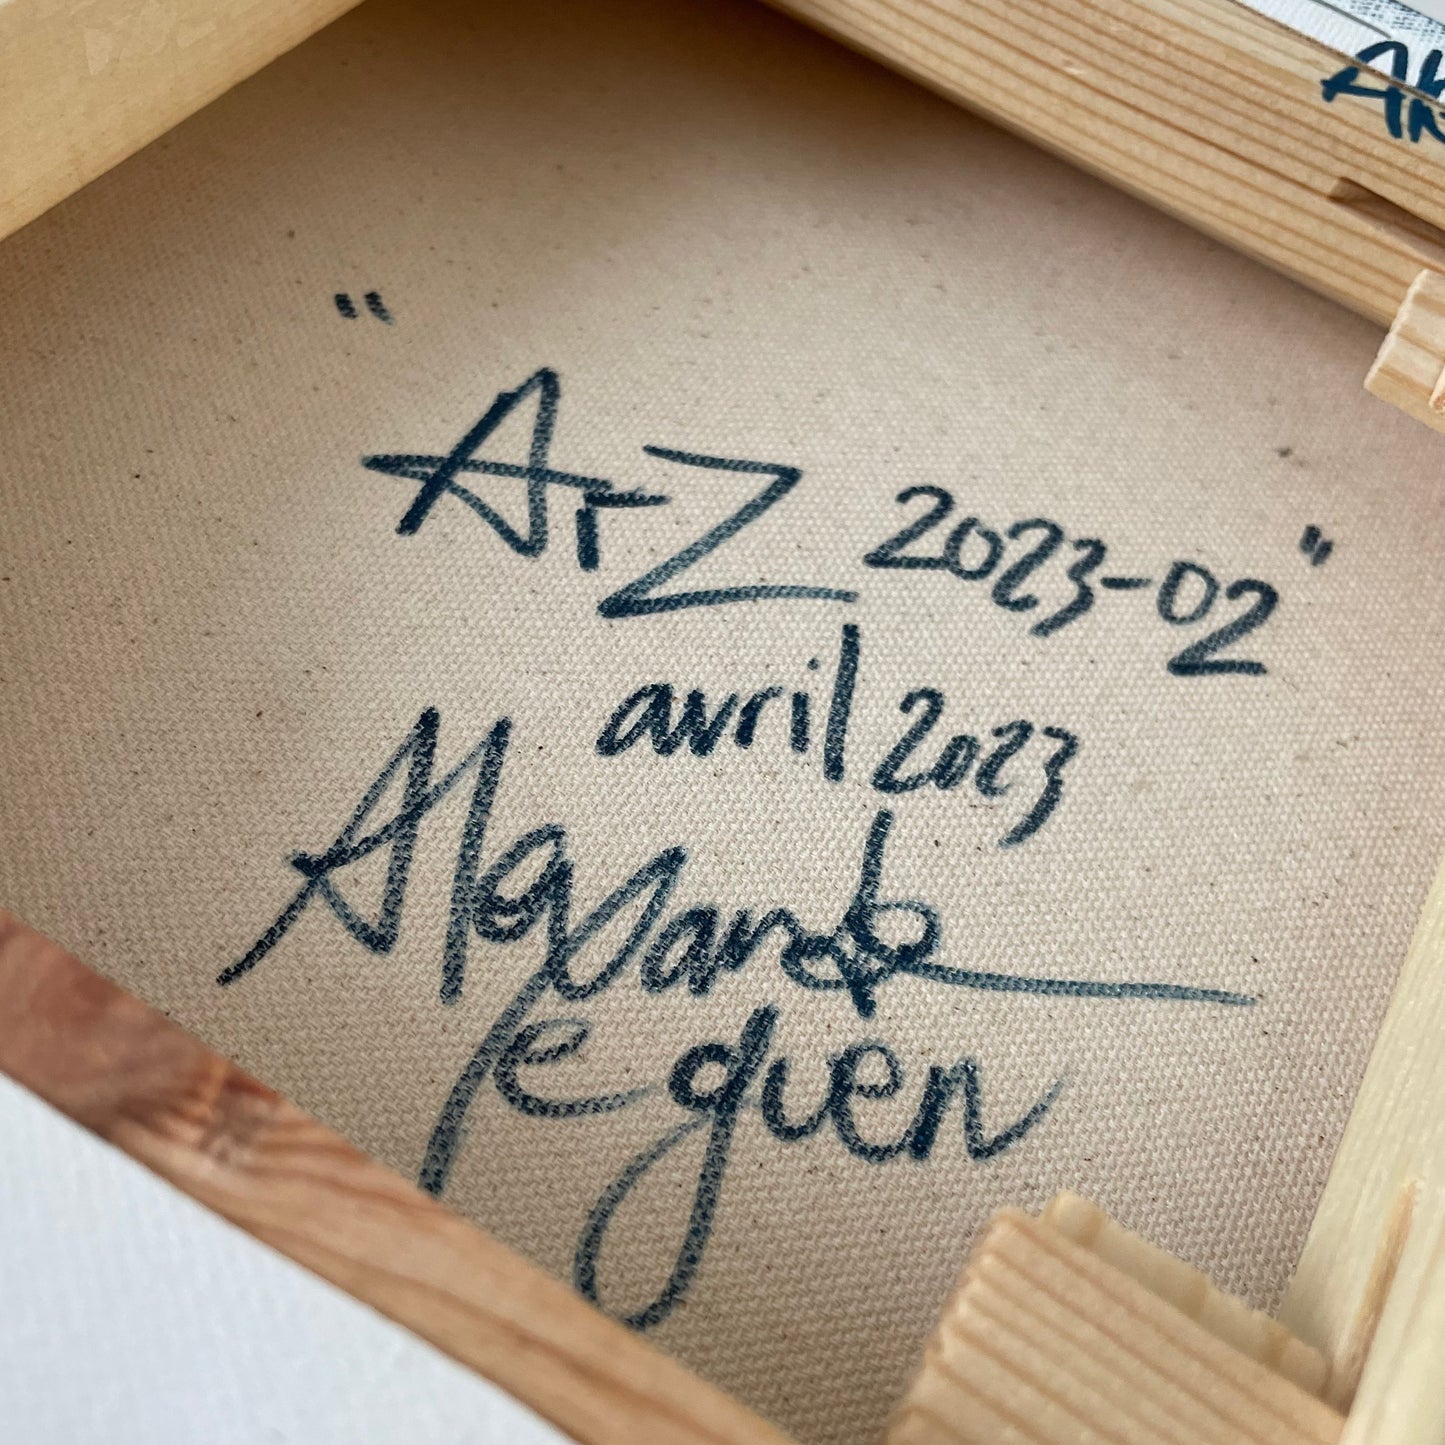 "ArZ 2023-02"
avril 2023
Alexandre
Jeguen